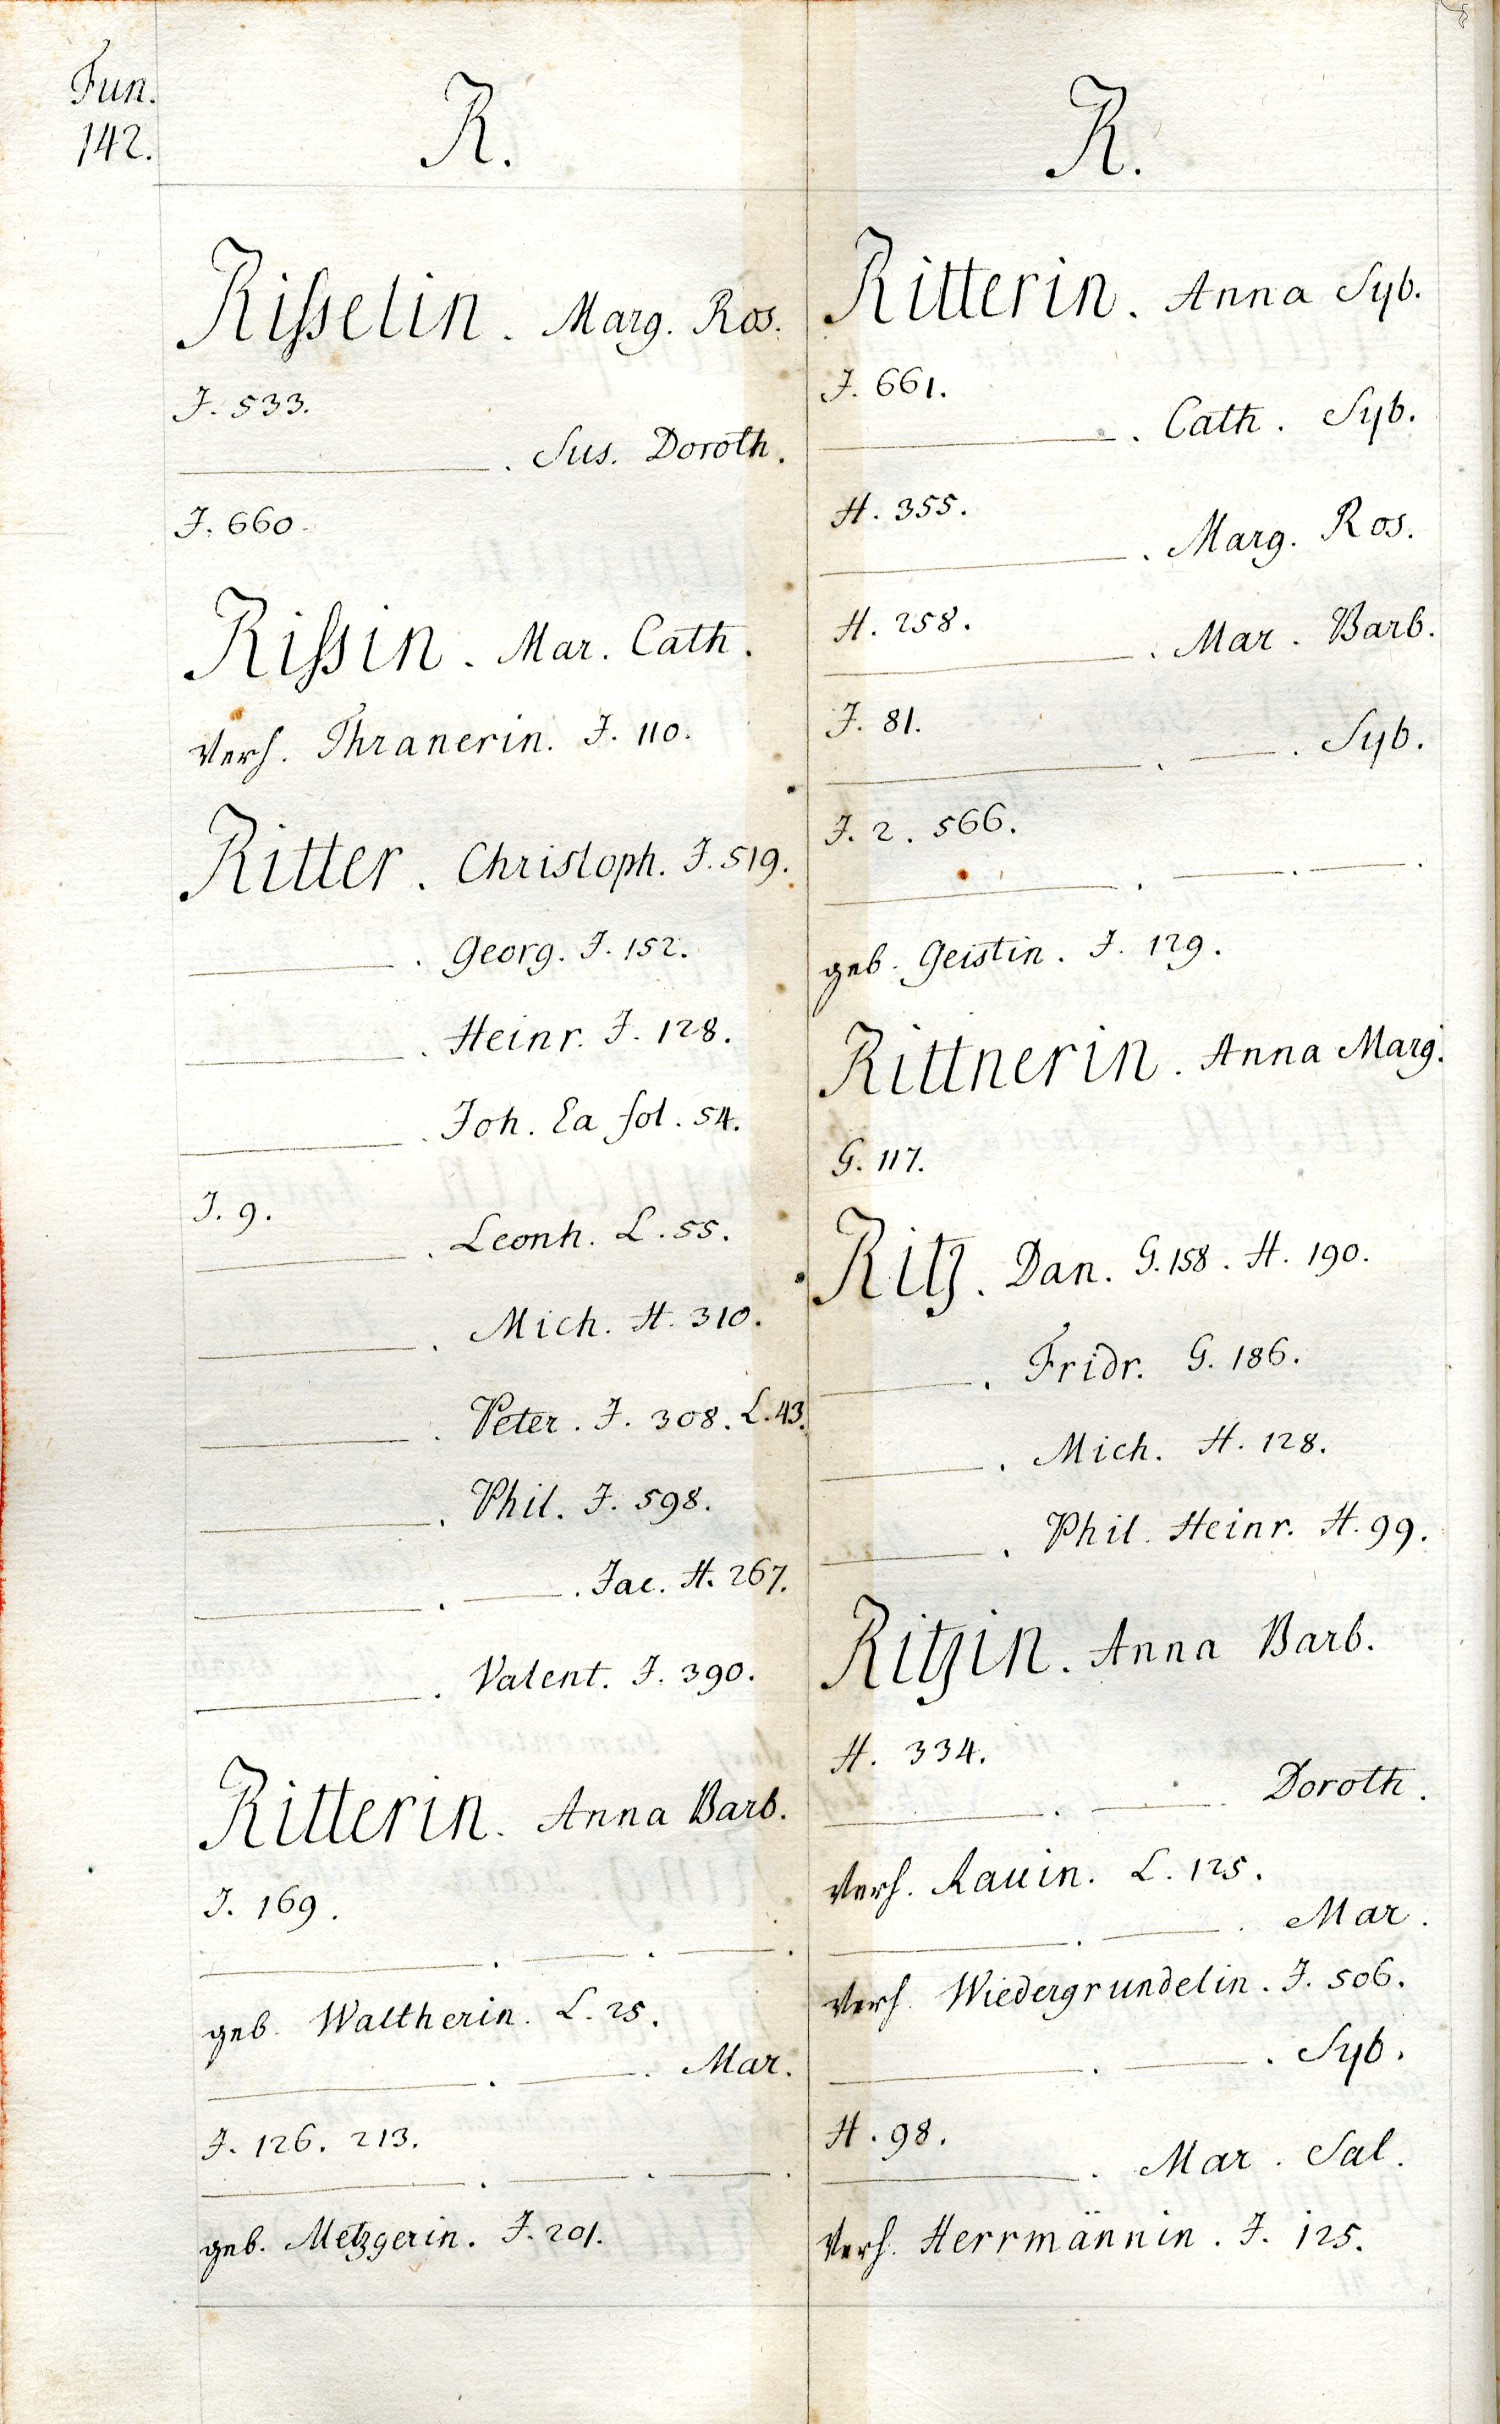 Fun.
142.
R.
Rißelin. Marg. Ros.
J. 533.
———. Sus. Doroth.
J. 660.
Rißin. Mar. Cath.
Verh. Thranerin. J. 110.
Ritter. Christoph. J. 519.
———. Georg. J. 152.
———. Heinr. J. 128.
———. Joh. Ea fol. 54.
J. 9.
———. Leonh. L. 55.
———. Mich. H. 310.
———. Peter. J. 308. L. 43.
———. Phil. J. 598.
———. ———. Jac. H. 267.
———. Valent. J. 390.
Ritterin. Anna Barb.
J. 169.
———. ———. ———.
geb. Waltherin. L. 25.
———. ———. Mar.
J. 126. 213.
———. ———. ———.
geb. Metzgerin. J. 201.
R.
Ritterin. Anna Syb.
J. 661.
———. Cath. Syb.
H. 355.
———. Marg. Ros.
H. 258.
———. Mar. Barb.
J. 81.
———. ———. Syb.
J. 2. 566.
———. ———. ———.
geb. Geistin. J. 129.
Rittnerin. Anna Marg.
G. 117.
Ritz. Dan. G. 158. H. 190.
———. Fridr. G. 186.
———. Mich. H. 128.
———. Phil. Heinr. H. 99.
Ritzin. Anna Barb.
H. 334.
———. ———. Doroth.
Verh. Rauin. L. 125.
———. ———. Mar.
Verh. Wiedergrundelin. J. 506.
———. ———. Syb.
H. 98.
———. Mar. Sal.
Verh. Herrmännin. J. 125.